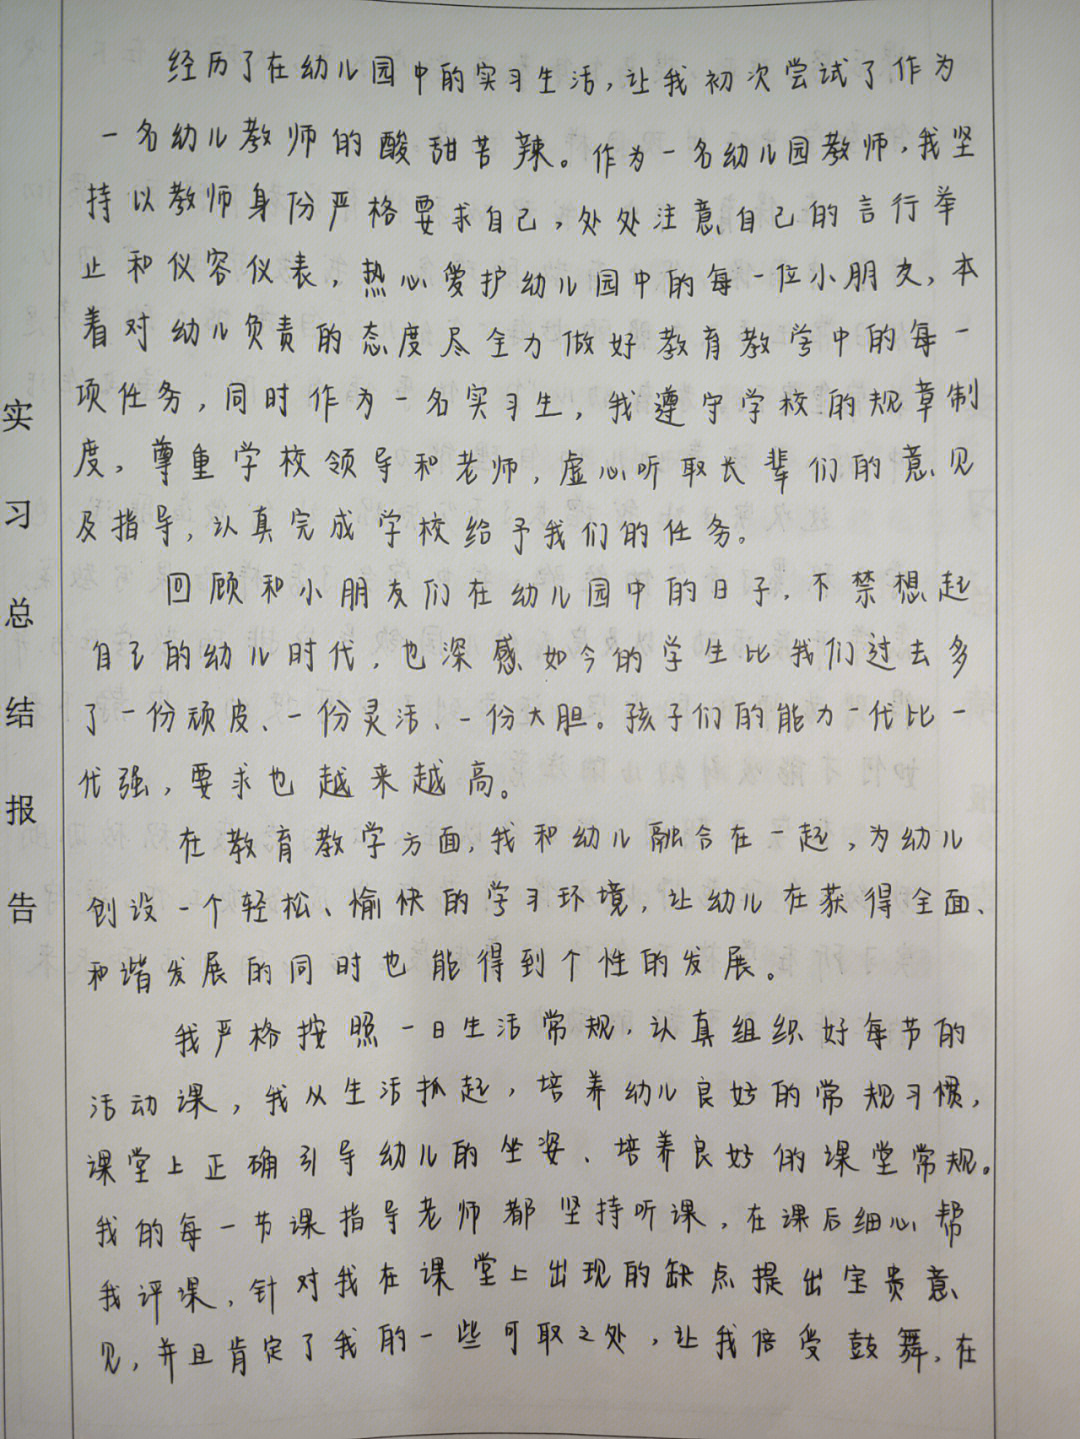 实习总结报告
经历了在幼儿园中的实习生活,让我初次尝试了作为
一名幼儿教师的酸甜苦辣。作为一名幼儿园教师,我坚
持以教师身份严格要求自己,处处注意自己的言行举
止和仪容仪表,热心爱护幼儿园中的每一位小朋友,本
着对幼儿负责的态度尽全力做好教育教学中的每一
项任务,同时作为一名实习生,我遵守学校的规章制
度,尊重学校领导和老师,虚心听取长辈们的意见
及指导,认真完成学校给予我们的任务。
回顾和小朋友们在幼儿园中的日子,不禁想起
自己的幼儿时代,也深感如今的学生比我们过去多
了一份顽皮、一份灵活、一份大胆。孩子们的能力一代比一
代强,要求也越来越高。
在教育教学方面,我和幼儿融合在一起,为幼儿
创设一个轻松、愉快的学习环境,让幼儿在获得全面、
和谐发展的同时也能得到个性的发展。
我严格按照一日生活常规,认真组织好每节的
活动课,我从生活抓起,培养幼儿良好的常规习惯,
课堂上正确引导幼儿的坐姿、培养良好的课堂常规。
我的每一节课指导老师都坚持听课,在课后细心帮
我评课,针对我在课堂上出现的缺点提出宝贵意
见,并且肯定了我的一些可取之处,让我倍受鼓舞,在